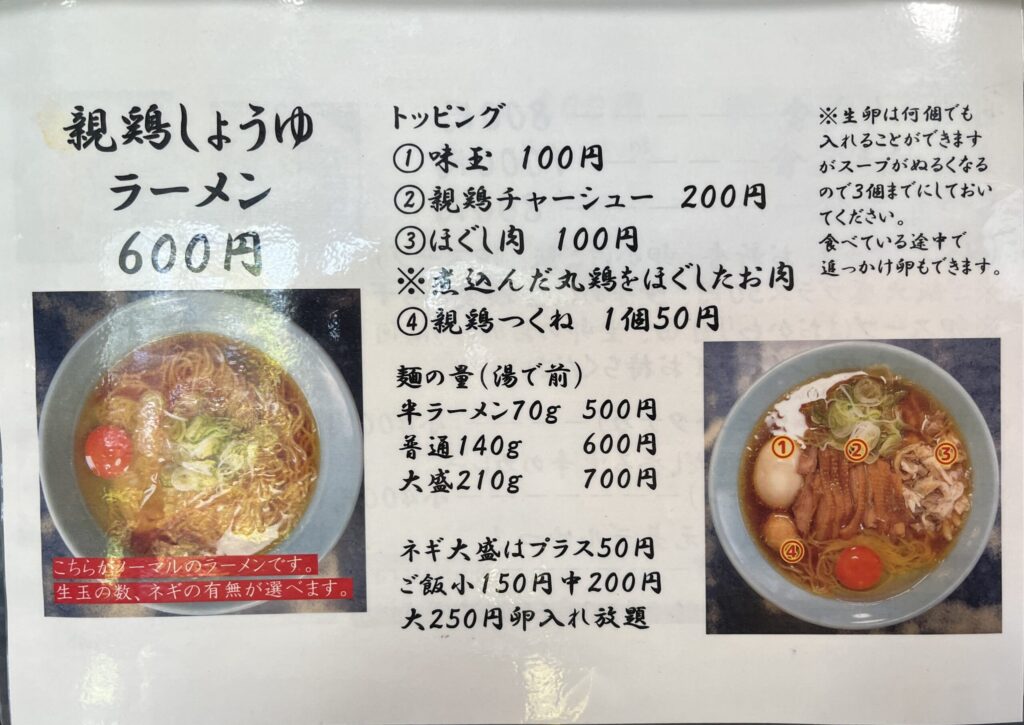 親鶏しょうゆ
ラーメン
600円
こちらがノーマルのラーメンです。
生玉の数、ネギの有無が選べます。
トッピング
①味玉 100円
②親鶏チャーシュー 200円
③ほぐし肉 100円
※煮込んだ丸鶏をほぐしたお肉
④親鶏つくね 1個50円
麺の量(湯で前)
半ラーメン70g 500円
普通140g 600円
大盛210g 700円
ネギ大盛はプラス50円
ご飯小150円中200円
大250円卵入れ放題
※生卵は何個でも
入れることができます
がスープがぬるくなる
ので3個までにしておい
てください。
食べている途中で
追っかけ卵もできます。
①
②
③
④